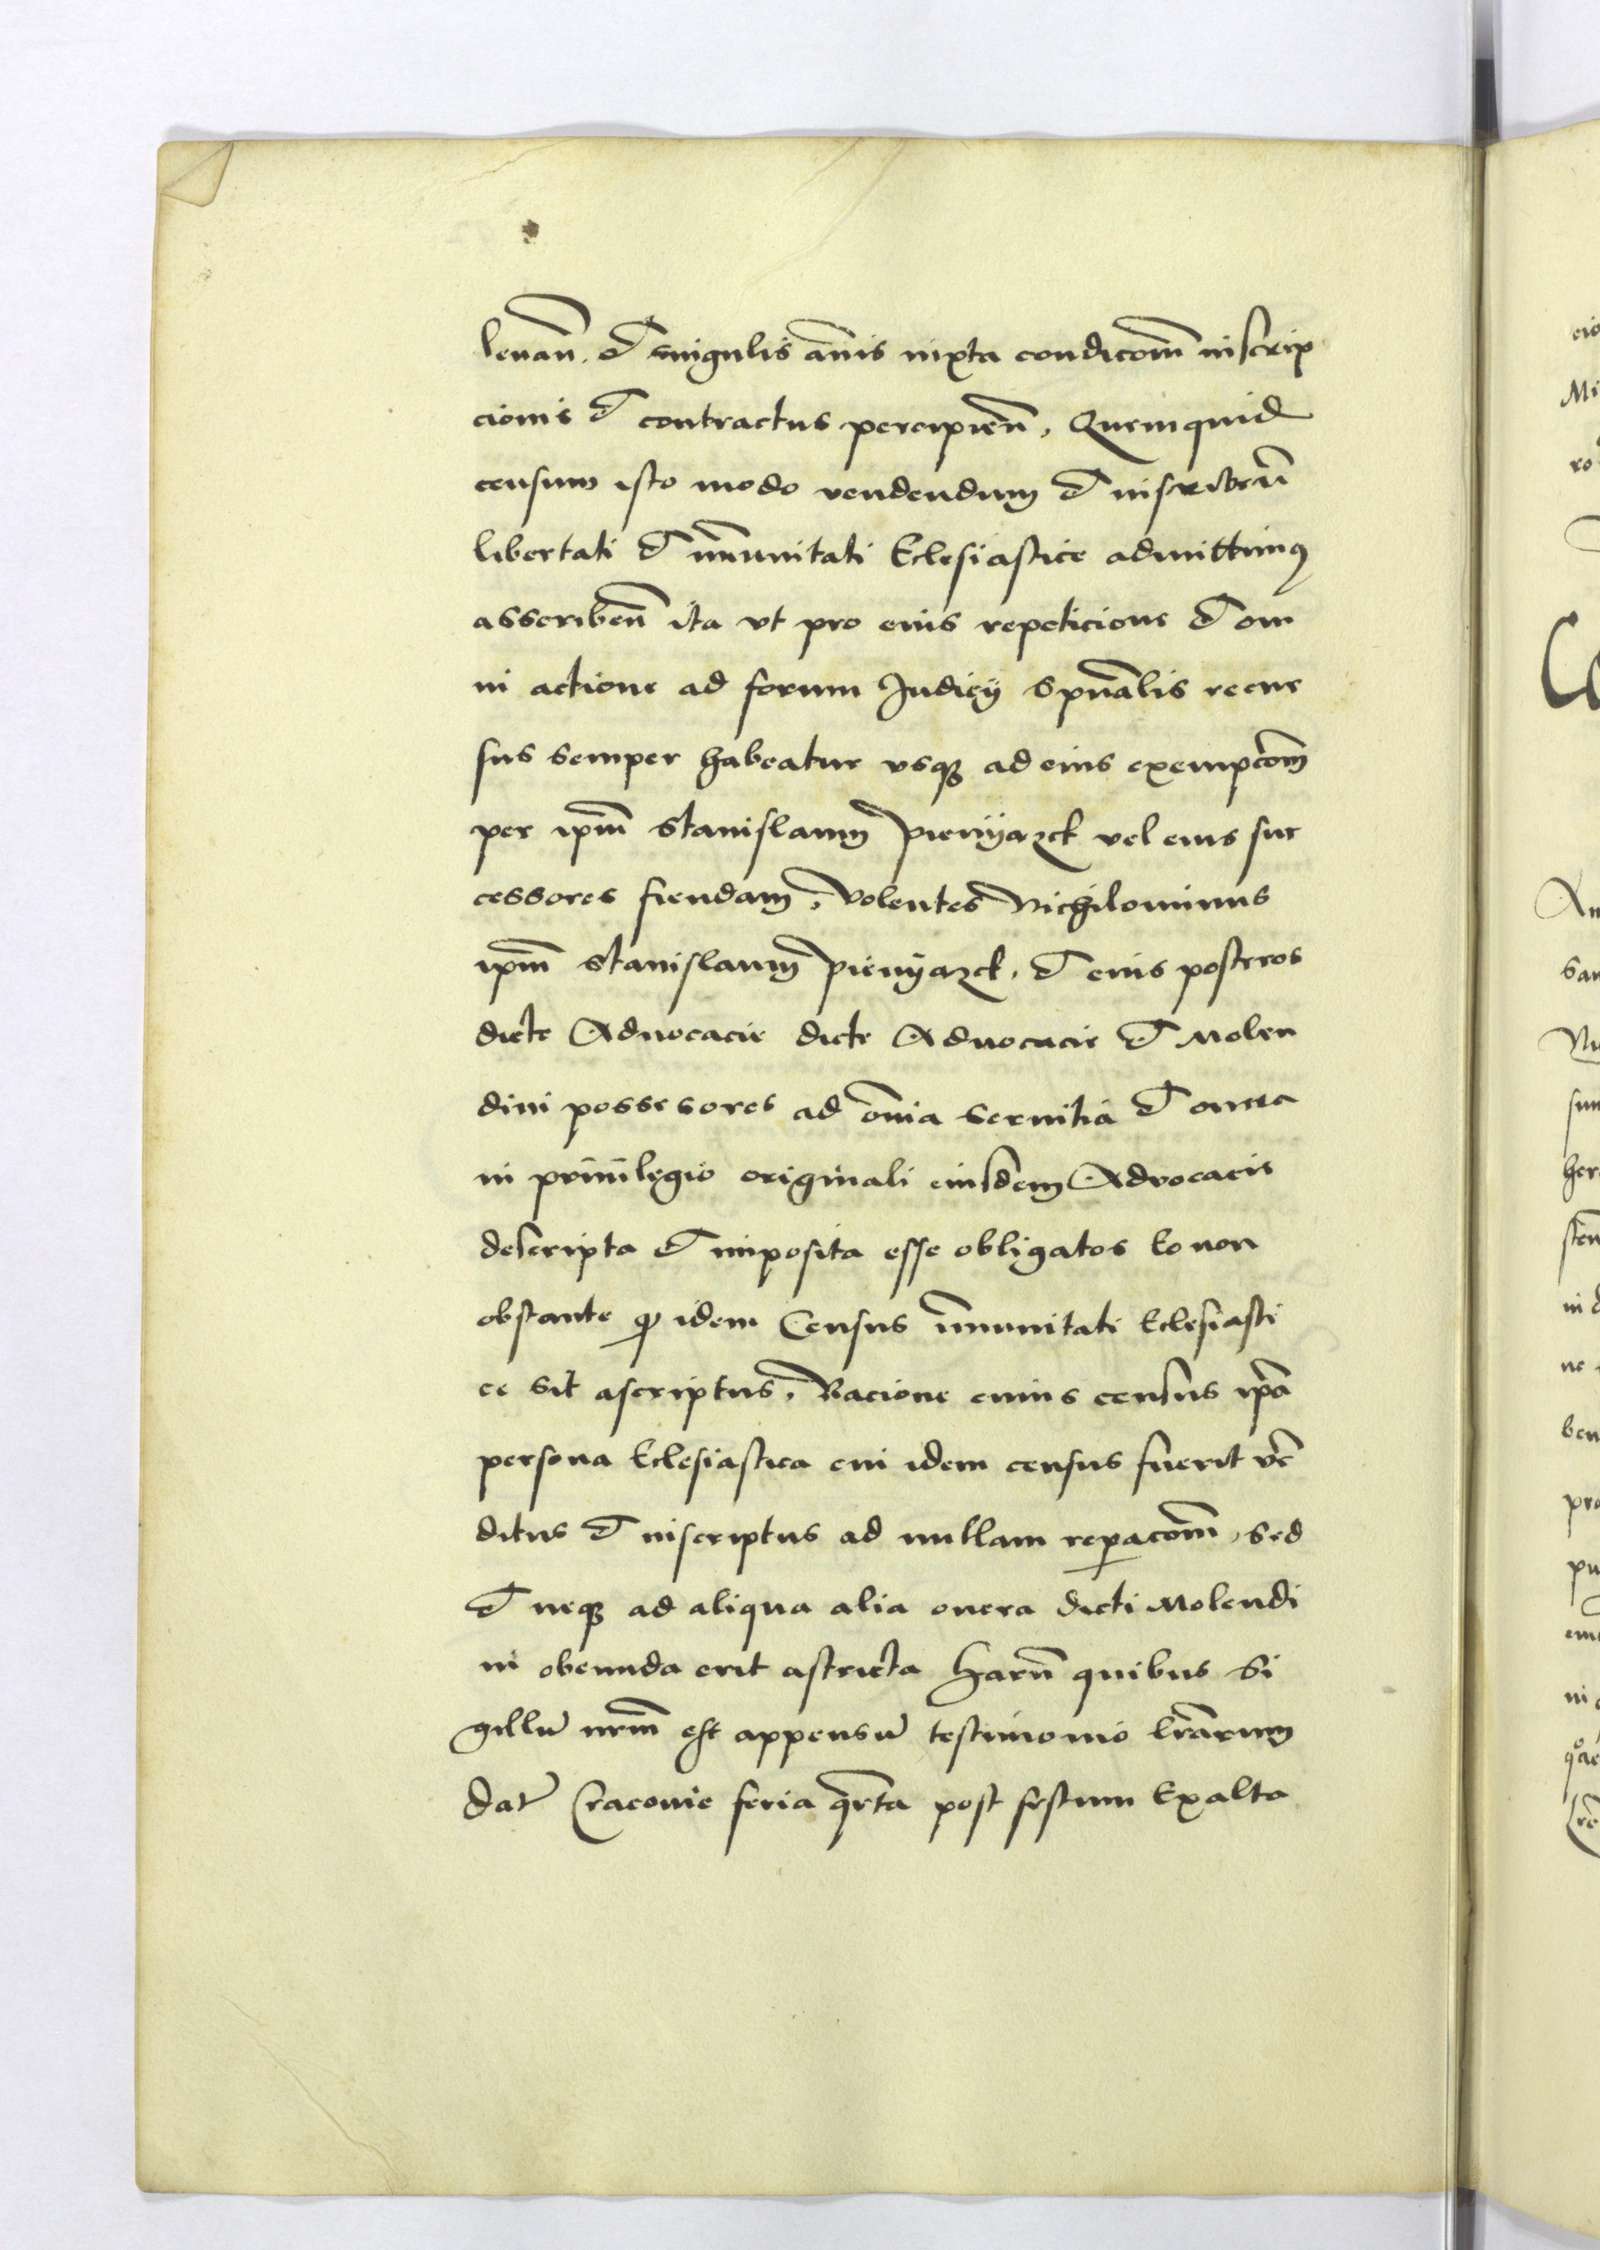 leuan̄. et singulis ānis iuxta condicōm̄ inscrip
cionis et contractus percipien̄, Quemquid
censum isto modo vendendum et inscriben̄
libertati et īmunitati Eclesiastice admittimus
asscriben̄ ita vt pro eius repeticione et om
ni actione ad forum Judicij spūalis recur
sus semper habeatur vsqꝫ ad eius exempcōm
per ipm̄ Stanislaum pienyazck vel eius suc
cessores fiendam, Volentes Nichilominus
ipm̄ Stanislaum pienyazck, et eius posteros
dicte Aduocacie dicte Aduocacie et Molen
dini possessores ad ōnia seruitia et onera
in priuilegio originali eiusdem Advocacie
descripta et imposita esse obligatos Eo non
obstante ꝙ idem Census īmunitati Eclesiasti
ce sit ascriptus, Racione cuius census ip̄a
persona Eclesiastica cui idem census fuerit vē
ditus et inscriptus ad nullam reꝑacōm̄, sed
et neqꝫ ad aliqua alia onera dicti Molendi
ni obeunda erit astricta Harū quibus Si
gillū nrm̄ est appensū testimonio lr̄arum
Dat̄ Cracouie feria qrta post festum Exalta